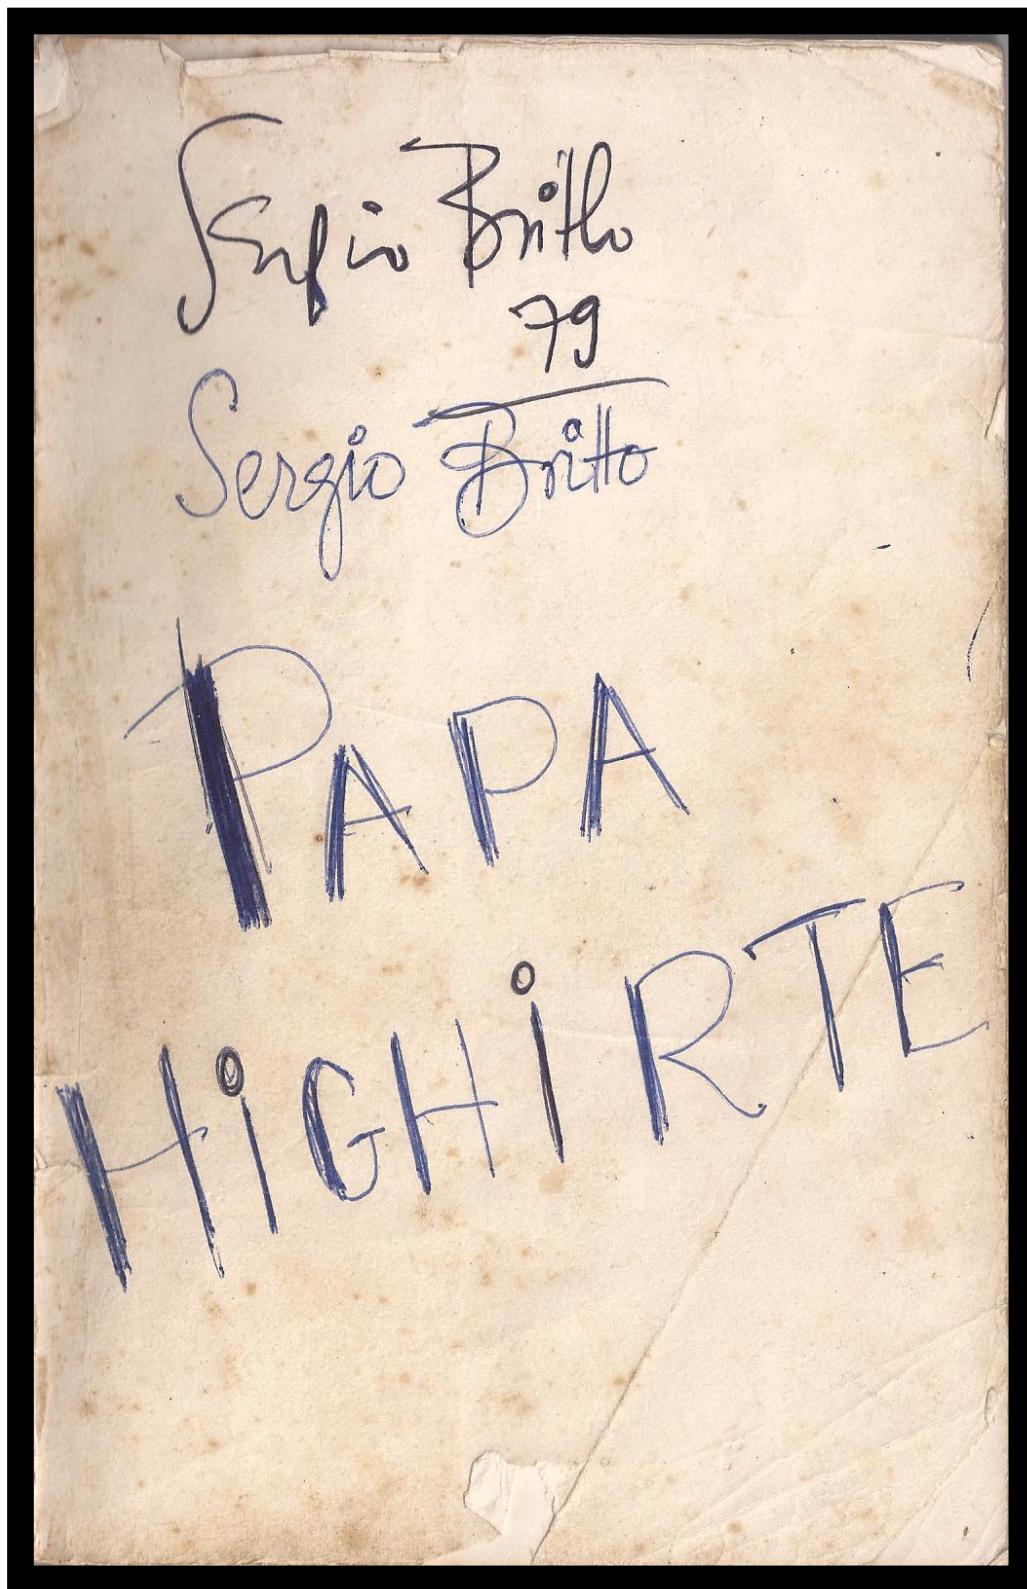 Sergio Britto
79
Sergio Britto
PAPA
HiGHiRTE